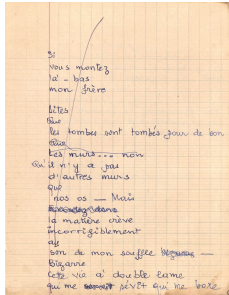 Si
vous montez
là-bas
mon frère
Dites
que
les tombes sont tombés pour de bon
Les murs... non
Qu'il n'y a pas
d'autres murs
que
nos os — Mais
la matière crève
incorrigiblement
au
son de mon souffle
bizarre
Cette vie à double lame
qui me sévit qui me